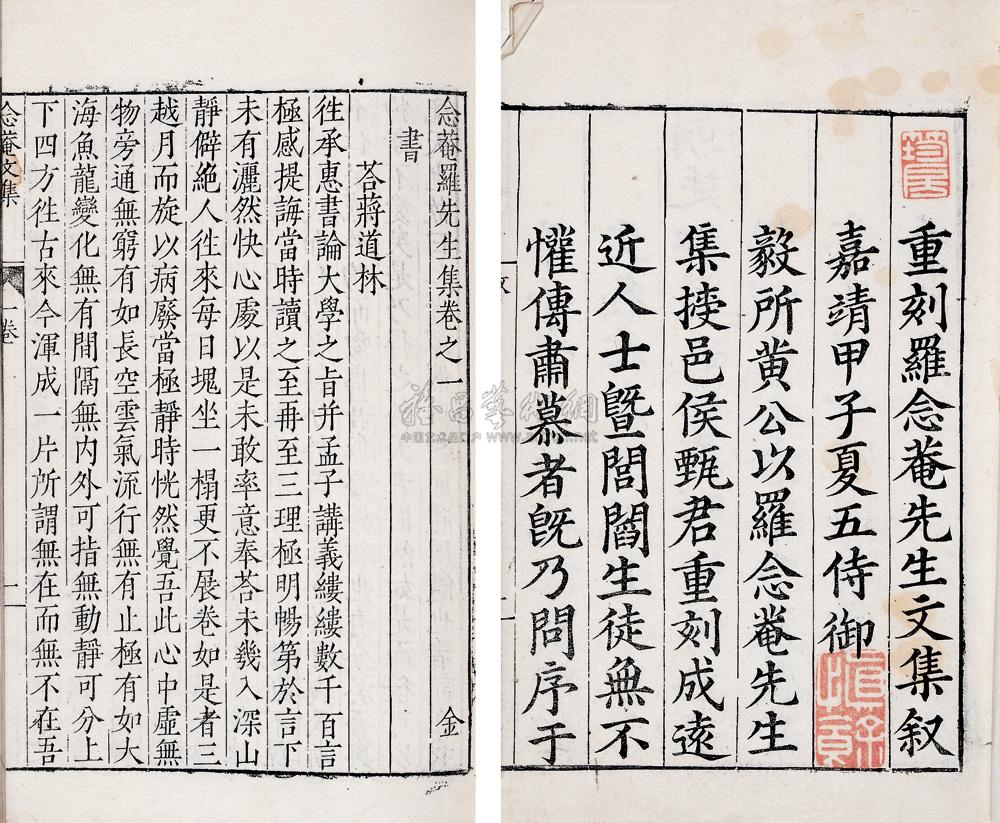 重刻羅念菴先生文集叙
嘉靖甲子夏五侍御
毅所黄公以羅念菴先生
集授邑侯甄君重刻成遠
近人士曁閭閻生徒無不
懽傳肅慕者旣乃問序于
念菴羅先生集卷之一
金
書
荅蔣道林
徃承惠書論大學之旨并孟子講義縷縷數千百言
極感提誨當時讀之至再至三理極明暢第於言下
未有灑然快心處以是未敢率意奉荅未幾入深山
靜僻絶人徃來每日塊坐一榻更不展卷如是者三
越月而旋以病廢當極靜時恍然覺吾此心中虛無
物旁通無窮有如長空雲氣流行無有止極有如大
海魚龍變化無有間隔無内外可指無動靜可分上
下四方徃古來今渾成一片所謂無在而無不在吾
念菴文集
卷
一